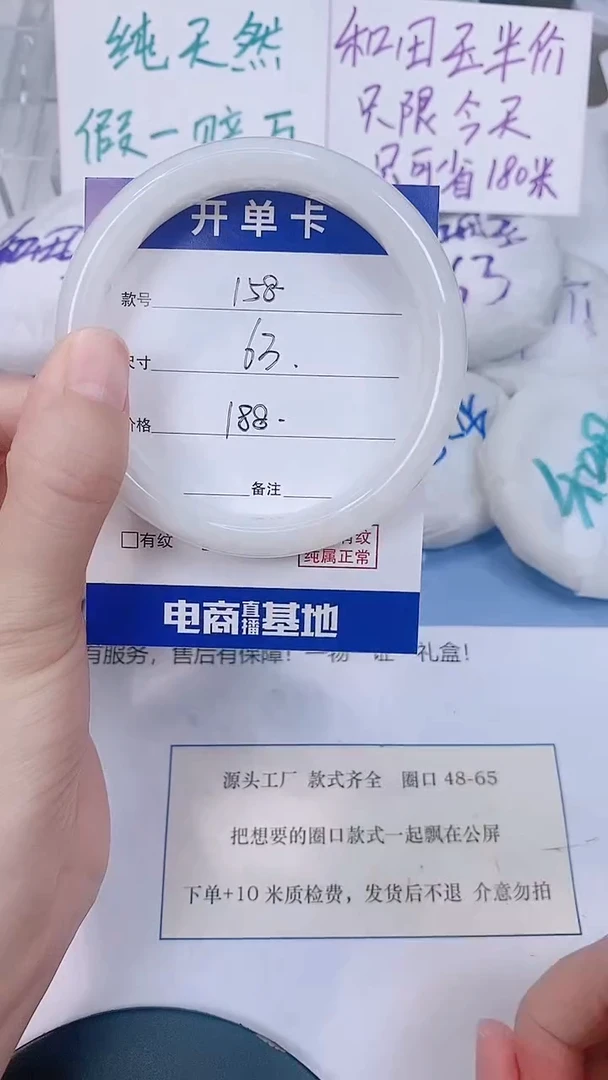 纯天然
假一赔万
和田玉半价
只限今天
只可省180米
和田
63
开单卡
款号 158
尺寸 63.
价格 188-
备注
□有纹
有纹
纯属正常
电商直播基地
有服务，售后有保障！一物一证 礼盒！
源头工厂 款式齐全 圈口 48-65
把想要的圈口款式一起飘在公屏
下单+10 米质检费，发货后不退 介意勿拍